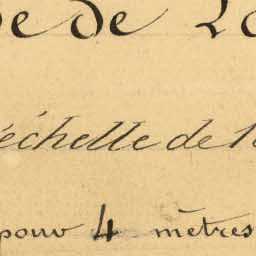 de
l'échelle de
pour 4 mètres